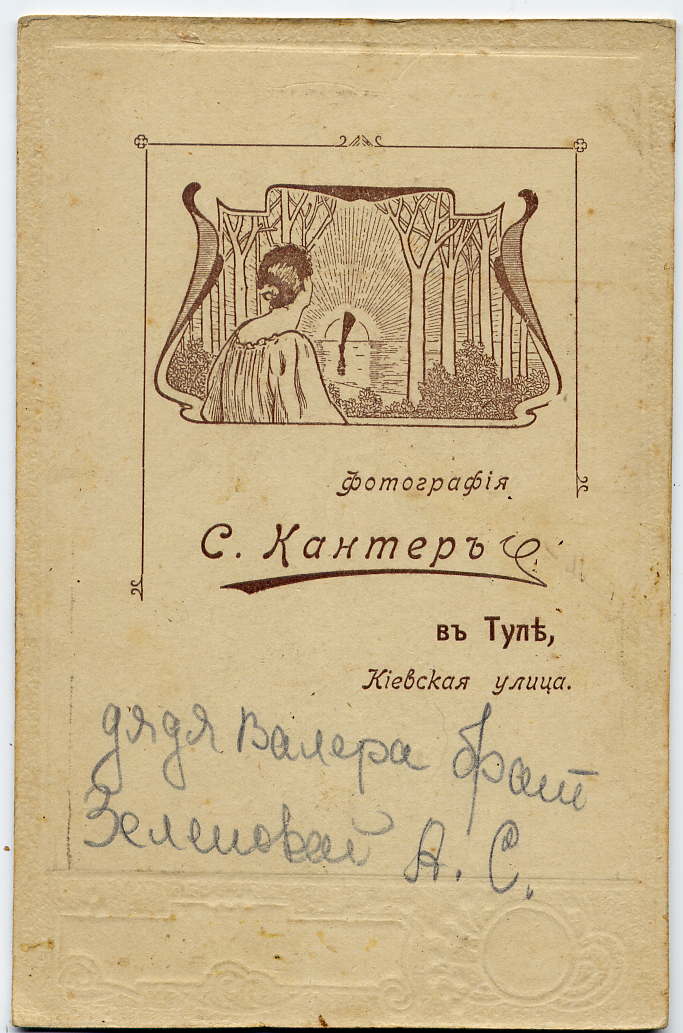 Фотографія
С. Кантеръ
въ Тулѣ,
Кіевская улица.
дядя Валера брат
Зеленовой А. С.